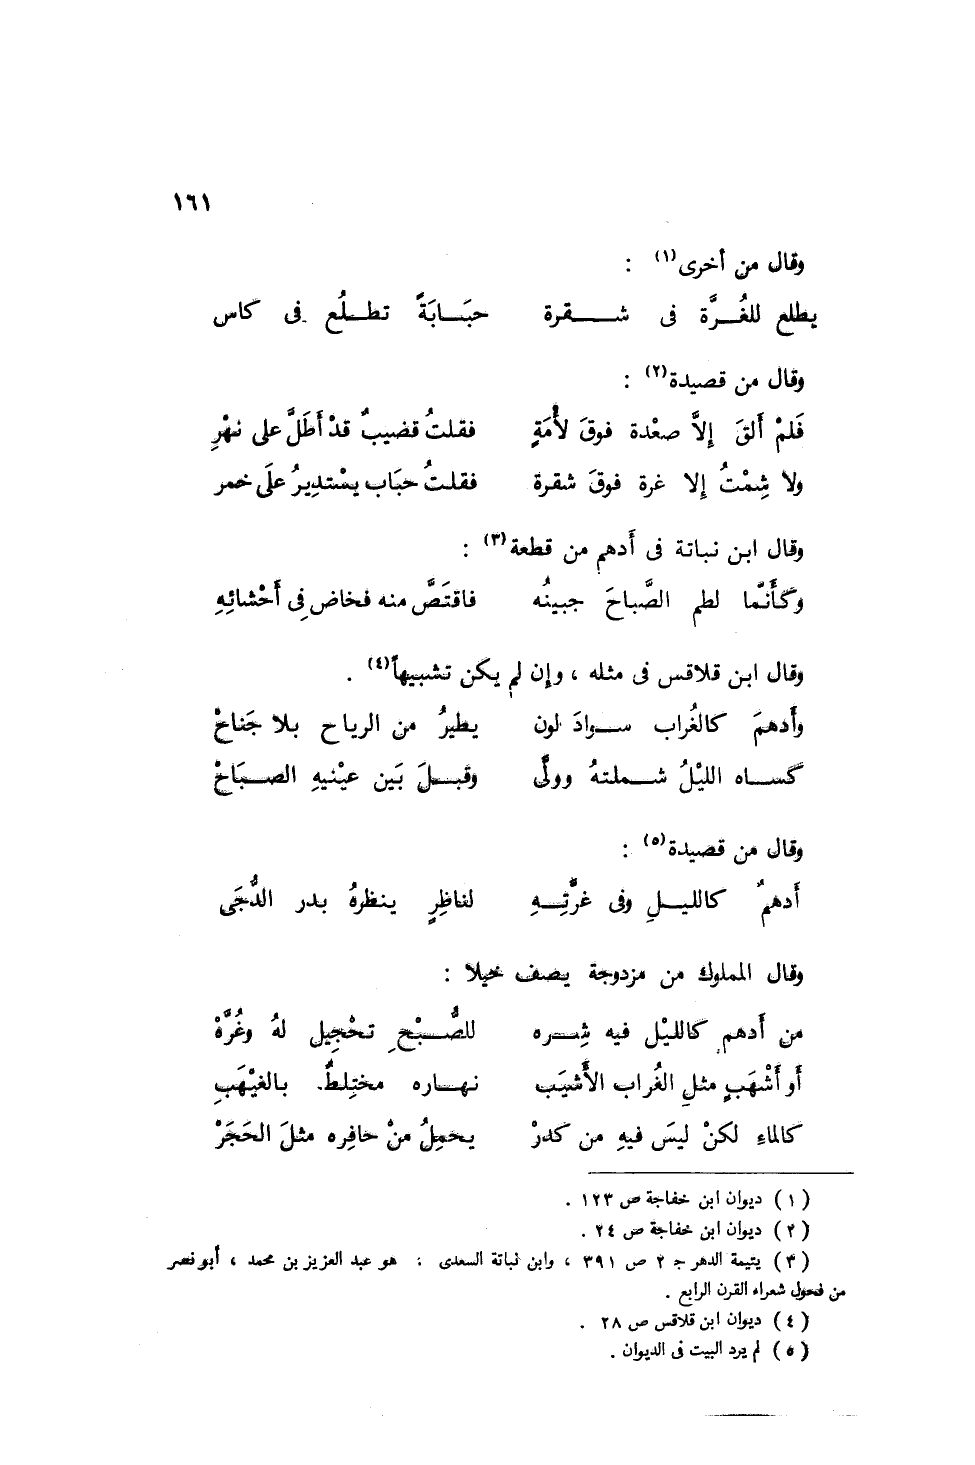 ١٦١
وقال من أخرى(١) :
يطلع للغُرَّة فى شقرة حبَابَةً تطلُع فى كاس
وقال من قصيدة(٢) :
فَلمْ أَلقَ إلاَّ صعْدة فوقَ لأْمَةٍ فقلتُ قضيبٌ قدْ أَطَلَّ على نهْرِ
ولا شِمْتُ إلا غرة فوقَ شقرة فقلتُ حبَاب يسْتديرُ علَى خمر
وقال ابن نباتة فى أَدهم من قطعة(٣) :
وكَأَنَّما لطم الصَّباحَ جبينُه فاقتَصَّ منه فخاض فِى أَحْشائِهِ
وقال ابن قلاقس فى مثله ، وإن لم يكن تشبيهاً(٤) .
وأَدهمَ كالغُراب سوادَ لون يطيرُ من الرياح بلا جَناحْ
كساه الليْلُ شملتهُ وولَّى وقبلَ بَين عيْنيهِ الصبَاحْ
وقال من قصيدة(٥) :
أَدهمٌ كالليلِ وفى غرَّتِهِ لناظِرٍ ينظرهُ بدر الدُّجَى
وقال المملوك من مزدوجة يصف خيلا :
من أَدهم كالليْل فيه شِره للصُّبْحِ تحْجِيل لهُ وغُرَّهْ
أَو أَشْهَبٍ مثلِ الغُراب الأَشيَب نهاره مختلِطٌ بالغيْهَبِ
كالماءِ لكنْ ليسَ فيهِ من كدرْ يحمِلُ منْ حافِره مثلَ الحَجَرْ
(١) ديوان ابن خفاجة ص ١٢٣ .
(٢) ديوان ابن خفاجة ص ٢٤ .
(٣) يتيمة الدهر جـ ٢ ص ٣٩١ ، وابن نباتة السعدى : هو عبد العزيز بن محمد ، أبو نصر
من فحول شعراء القرن الرابع .
(٤) ديوان ابن قلاقس ص ٢٨ .
(٥) لم يرد البيت فى الديوان .